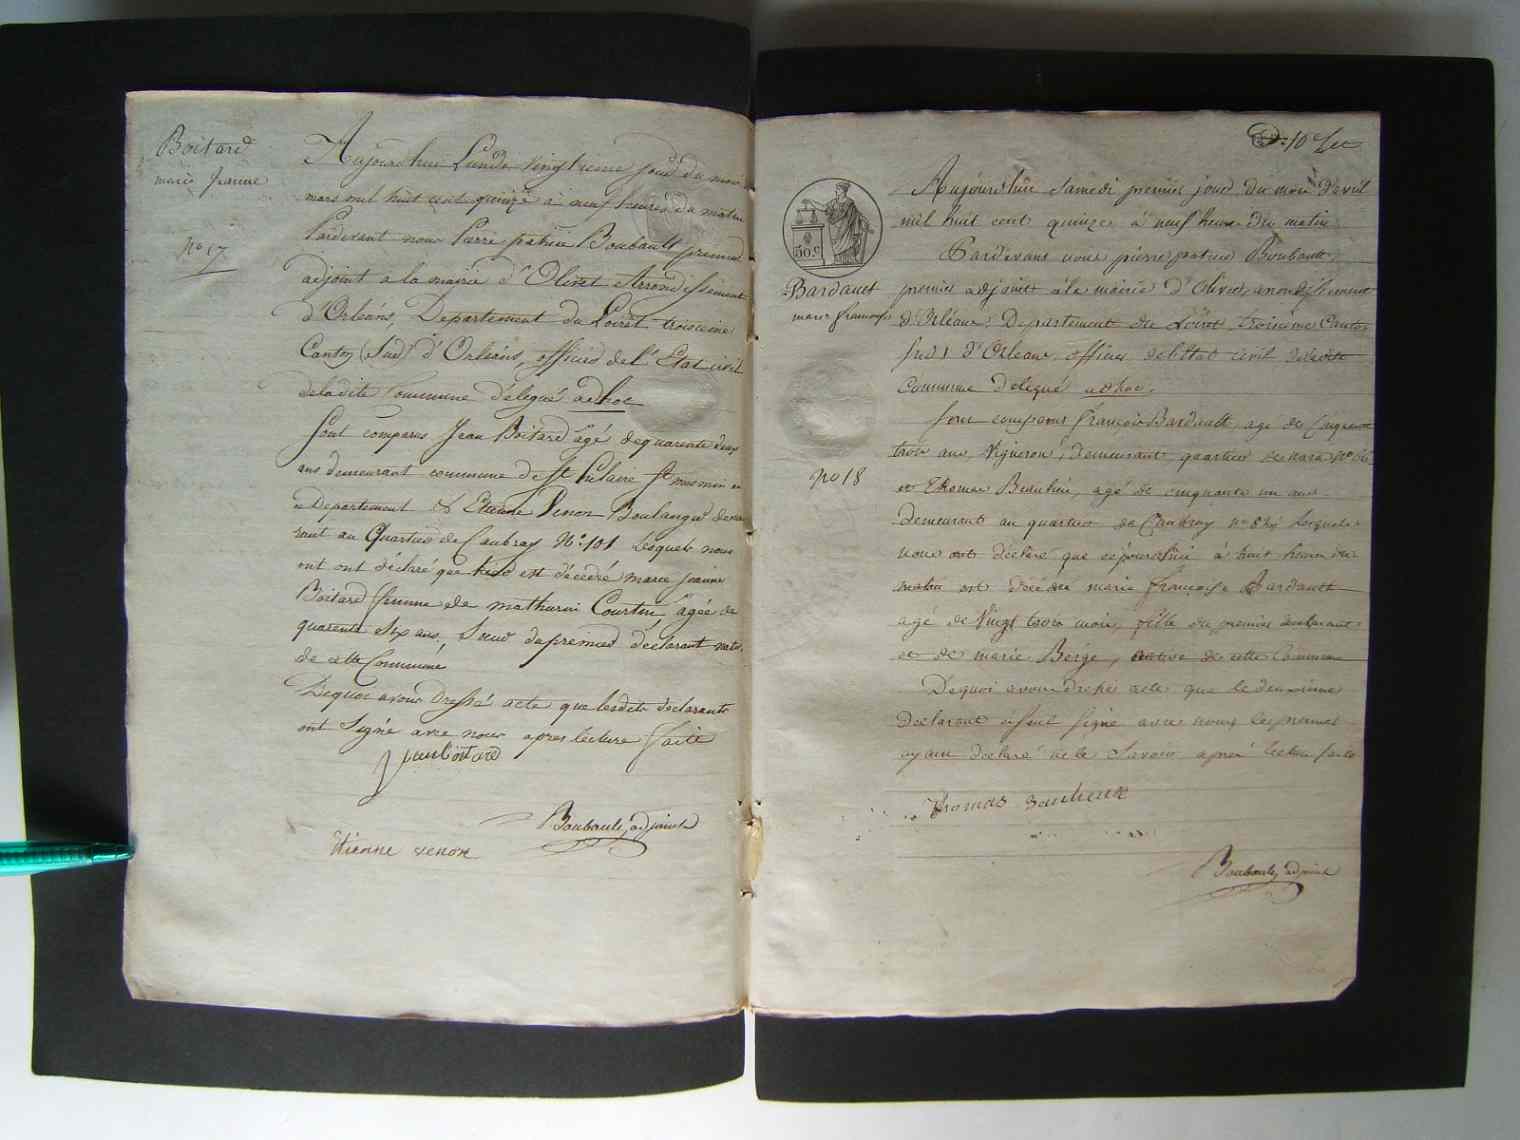 Boitard
marie Jeanne
No 17
Aujourdhui Lundi vingt jour du mois
mars mil huit cent quinze à neuf heures du matin
Pardevant nous Pierre patrice Boubault premier
adjoint a la mairie d'Olivet Arrondissement
d'Orléans, Departement du Loiret troisieme
Canton (Sud) d'Orléans, officier de l'Etat civil
de ladite Commune délegué adhoc
Sont comparus Jean Boitard agé de quarente deux
ans demeurant commune de St hilaire St mesmin
Departement & Etienne Venon Boulanger demeu
rant au Quartier de Caubray No. 101 Lesquels nous
ont déclaré que est décédé marie jeanne
Boitard femme de mathurin Courtin agée de
quarente Six ans, Soeur du premier déclarant native
de cette Commune
Dequoi avons Dressé acte que lesdits déclarants
ont Signé avec nous apres lecture faite
jean boitard
Boubault, adjoint
Etienne venon
10e
Aujourdhui Samedi premier jour du mois d'avril
mil huit cent quinze à neuf heure du matin
Pardevant nous pierre patrice Boubault,
premier adjoint à la mairie d'Olivet, arrondissement
d'Orléans, Departement du Loiret, troisieme Canton
Sud d'Orleans officier de letat civil deladite
Commune Delegué adhoc.
50 c
Bardault
marie francoise
No 18
Sont comparus François Bardault, agé de Cinquante
trois ans, Vigneron, demeurant quartier No 66
et Thomas agé de cinquante un ans
Demeurant au quartier de Caubray no Lesquels
nous ont déclaré que cejourdhui à huit heures du
matin est décédée marie Françoise Bardault
agé de Vingt trois mois, fille du premier déclarant
et de marie Berge, native de cette Commune
Dequoi avons dressé acte que le deuxieme
declarant à Seul Signé avec nous le premier
ayant déclaré ne le Savoir apres lecture faite
Thomas
Boubault, adjoint